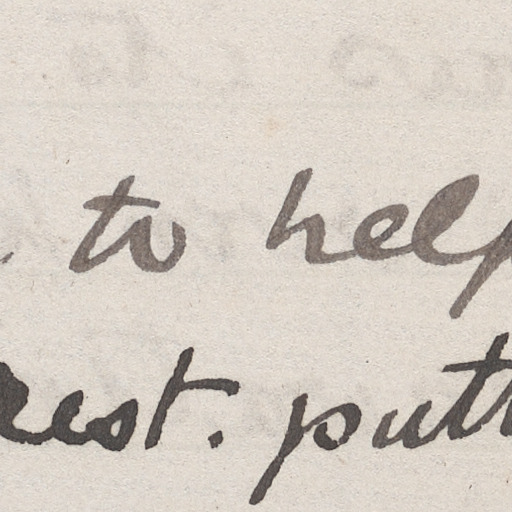 to help
rest. putt